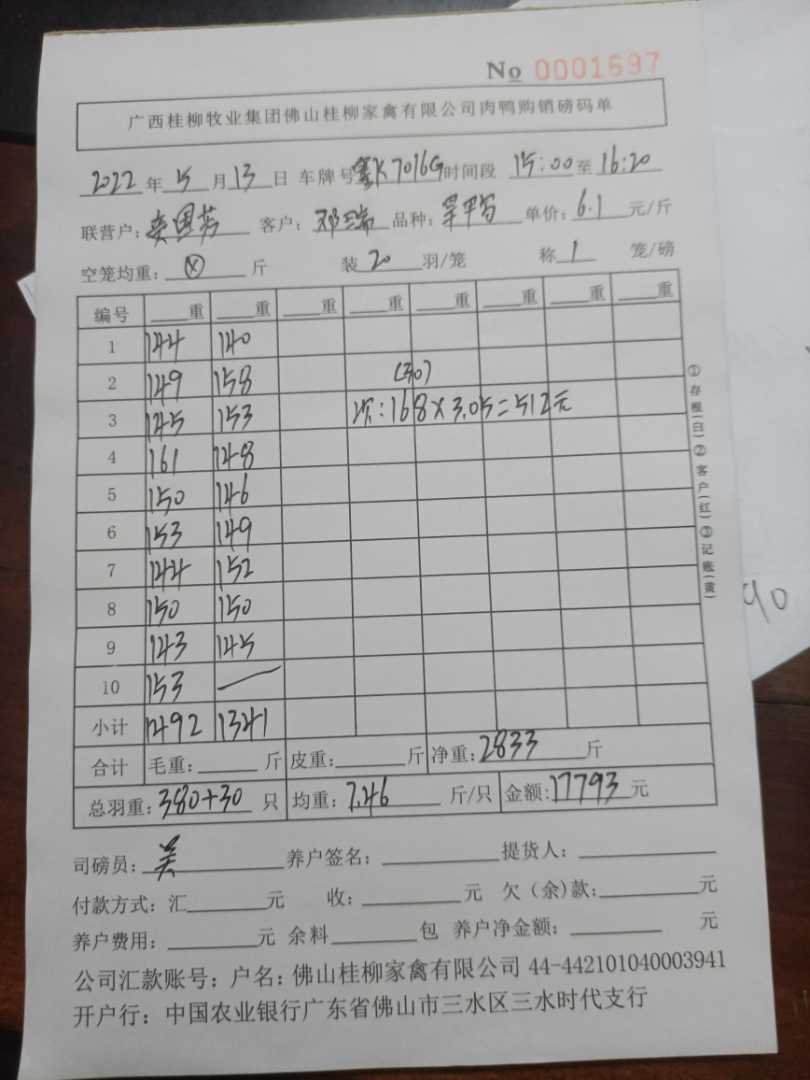 No 0001697
广西桂柳牧业集团佛山桂柳家禽有限公司肉鸭购销磅码单
2022 年 5 月 13 日 车牌号 K7016G 时间段 15:00 至 16:20
联营户: 客户: 邓瑞 品种: 单价: 6.1 元/斤
空笼均重: ⊗ 斤 装 20 羽/笼 称 1 笼/磅
编号 重 重 重 重 重 重 重 重
1 144 140
2 149 158 (30)
3 145 153 次:168×3.05=512元
4 161 148
5 150 146
6 153 149
7 144 152
8 150 150
9 143 145
10 153 —
小计 1492 1341
合计 毛重: 斤 皮重: 斤 净重: 2833 斤
总羽重: 380+30 只 均重: 7.46 斤/只 金额: 17793 元
司磅员: 养户签名: 提货人:
付款方式: 汇 元 收: 元 欠(余)款: 元
养户费用: 元 余料 包 养户净金额: 元
公司汇款账号: 户名: 佛山桂柳家禽有限公司 44-442101040003941
开户行: 中国农业银行广东省佛山市三水区三水时代支行
①存根(白)②客户(红)③记账(黄)
90